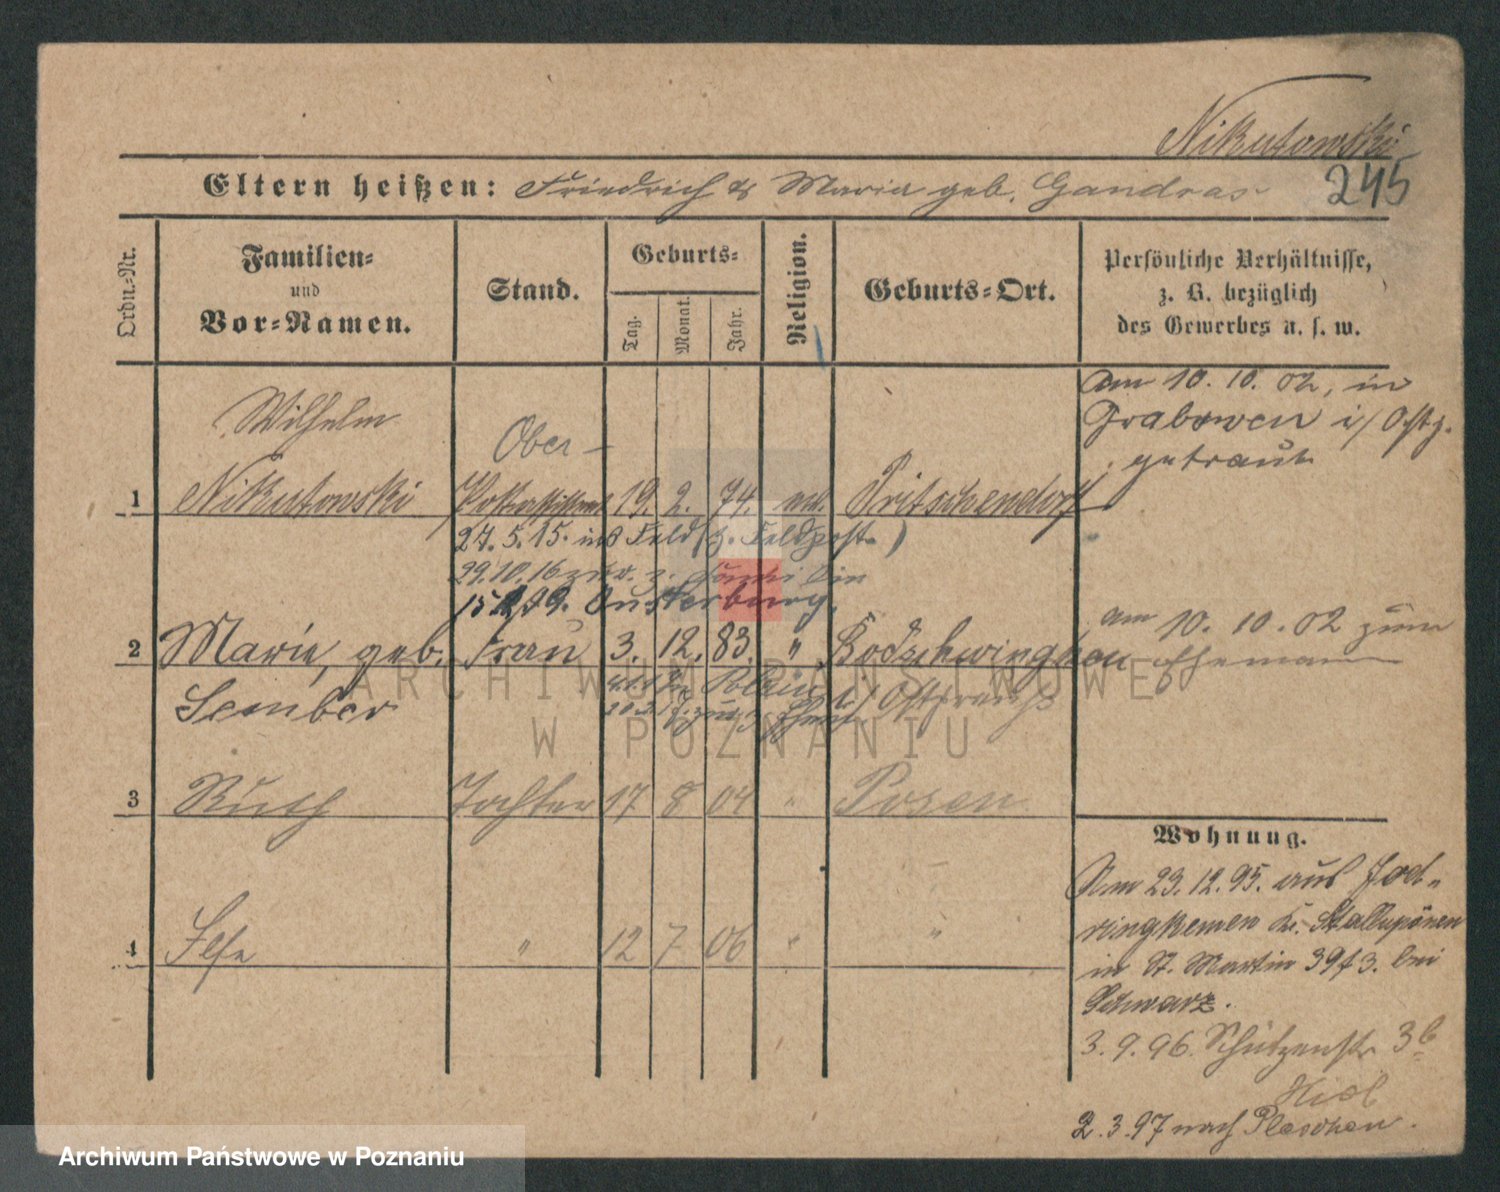 Nikutowski
245
Eltern heißen: Friedrich & Maria geb. Gandras
Ordn.-Nr.
Familien-
und
Vor-Namen.
Stand.
Geburts-
Tag.
Monat.
Jahr.
Religion.
Geburts-Ort.
Persönliche Verhältnisse,
z. B. bezüglich
des Gewerbes u. s. w.
Wilhelm
Ober-
1 Nikutowski Postassistent 19. 2. 74. Pritschendorf
am 10. 10. 02, in
Grabowen i/Ostp.
getraut
27. 5. 15. ins Feld (z. Feldpost)
29.10.16
2 Marie, geb. Frau 3. 12. 83. " Bodschwingken
Sember
am 10. 10. 02 zum
Ehemann
3 Ruth Tochter 17 8 04 " Posen
4 Else " 12 7 06 " "
Wohnung.
Am 23. 12. 95. aus Jod-
ringkemen Kr. Stallupönen
in St. Martin 39 f 3. bei
Schwarz.
3. 9. 96. Schützenstr 3b
2. 3. 97 nach Pleschen.
ARCHIWUM PAŃSTWOWE
W POZNANIU
Archiwum Państwowe w Poznaniu